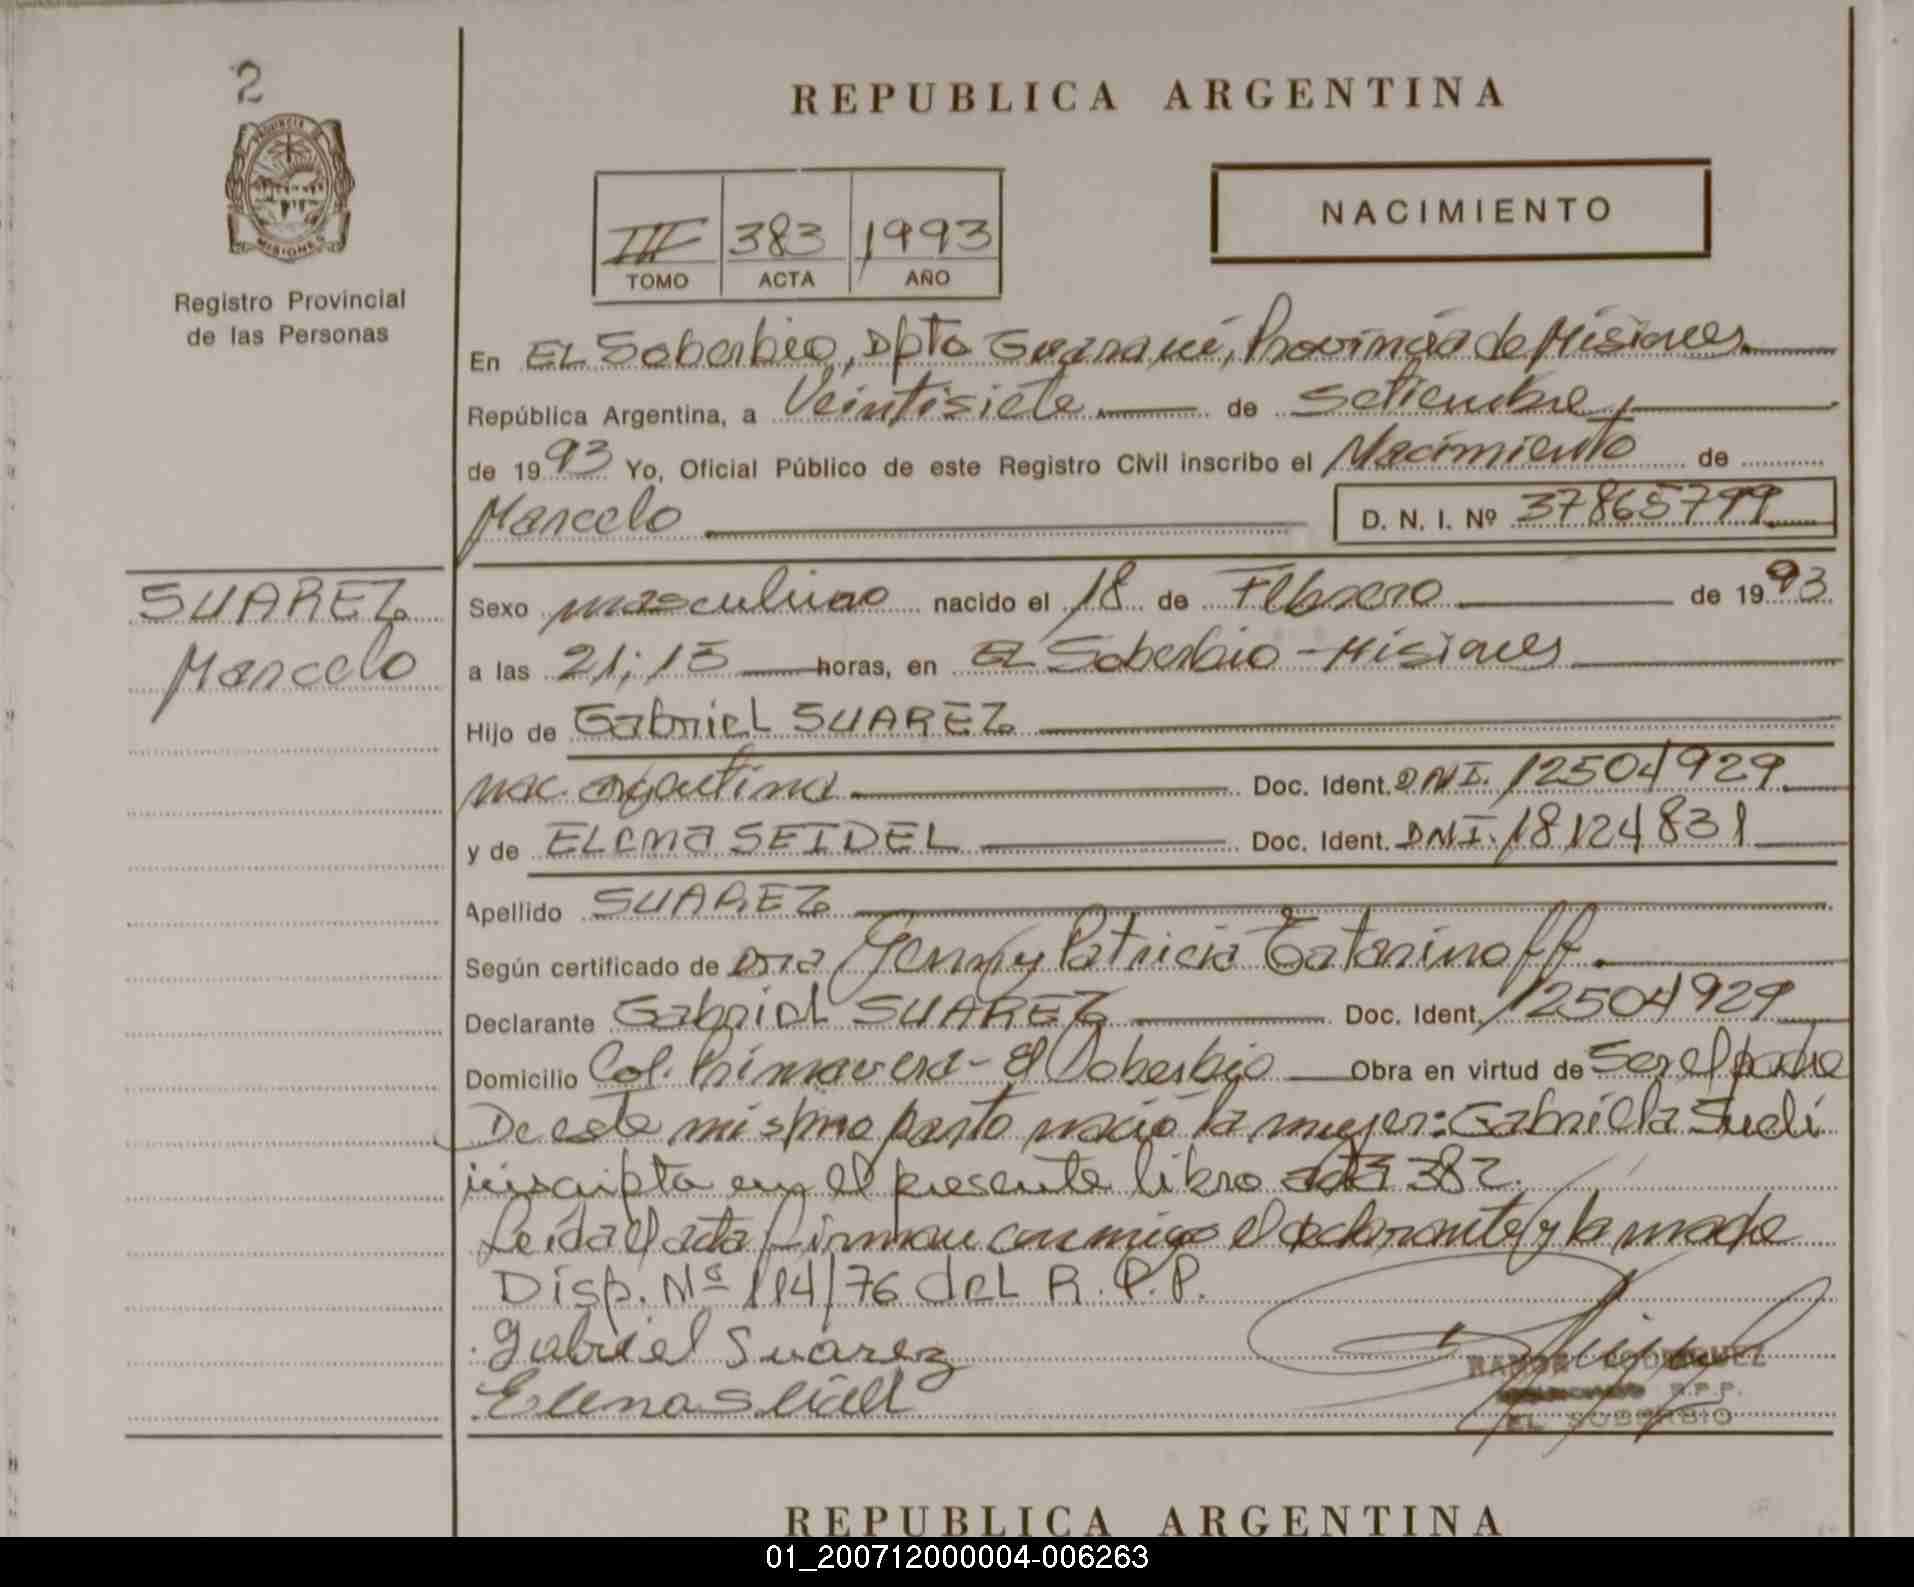 2
REPUBLICA ARGENTINA
PROVINCIA DE
MISIONES
Registro Provincial
de las Personas
III 383 1993
TOMO ACTA AÑO
NACIMIENTO
En EL Soberbio, Dpto Guaraní, Provincia de Misiones
República Argentina, a Veintisiete de Setiembre,
de 1993 Yo, Oficial Público de este Registro Civil inscribo el Nacimiento de
Marcelo D. N. I. Nº 37865799
SUAREZ
Marcelo
Sexo masculino nacido el 18 de Febrero de 1993
a las 21;15 horas, en EL Soberbio - Misiones
Hijo de Gabriel SUAREZ
nac. argentina Doc. Ident. DNI. 12504929
y de ELENA SEIDEL Doc. Ident. DNI. 18124831
Apellido SUAREZ
Según certificado de Dra Jenny Patricia
Declarante Gabriel SUAREZ Doc. Ident. 12504929
Domicilio Col. Primavera - El Soberbio Obra en virtud de Ser el padre
De este mismo parto nació la mujer: Gabriela Sueli
inscripta en el presente libro acta 382.
Leída el acta firman conmigo el declarante y la madre
Disp. Nº 114/76 del R.P.P.
Gabriel Suárez
Elena Seidel
RAMON RODRIGUEZ
R.P.P.
EL SOBERBIO
REPUBLICA ARGENTINA
01_200712000004-006263